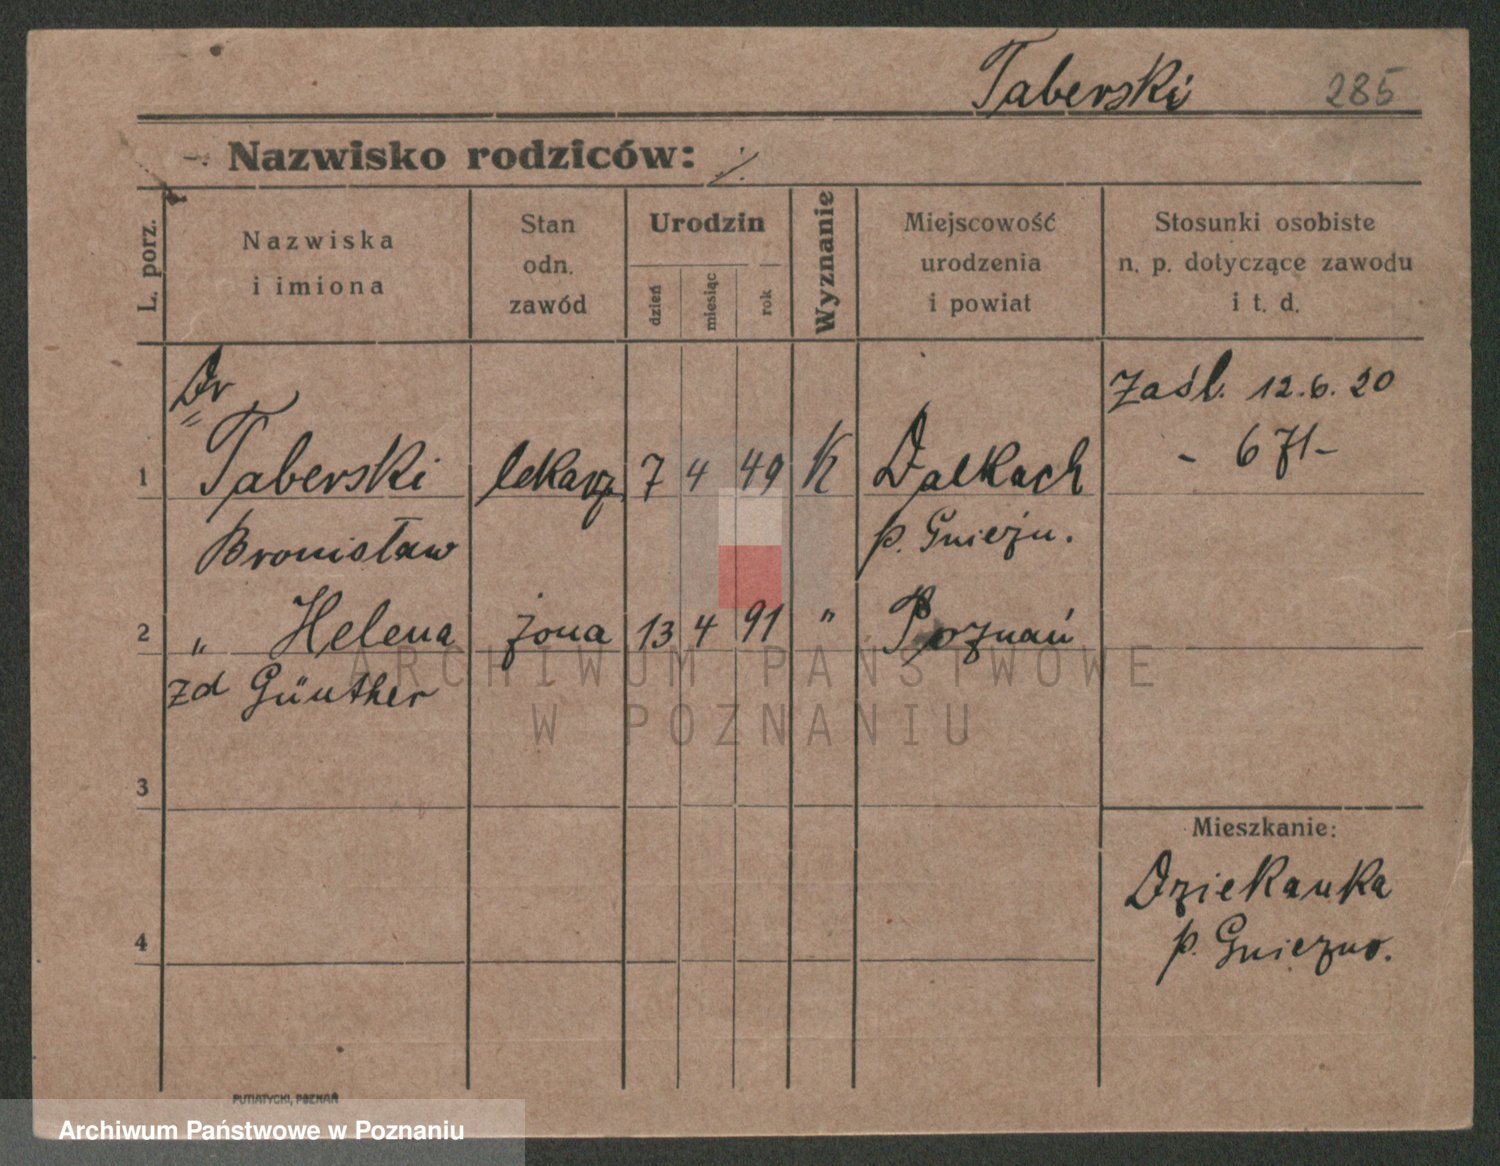 Taberski 285
Nazwisko rodziców: ./.
L. porz.
Nazwiska
i imiona
Stan
odn.
zawód
Urodzin
dzień
miesiąc
rok
Wyznanie
Miejscowość
urodzenia
i powiat
Stosunki osobiste
n. p. dotyczące zawodu
i t. d.
Dr
Zaśl. 12.6.20
1 Taberski lekarz 7 4 49 K Dalkach
- 6 71 -
Bronisław p. Gniezn.
2 " Helena żona 13 4 91 " Poznań
zd Günther
ARCHIWUM PAŃSTWOWE
W POZNANIU
3
Mieszkanie:
Dziekanka
4
p. Gniezno.
PUTIATYCKI, POZNAŃ
Archiwum Państwowe w Poznaniu